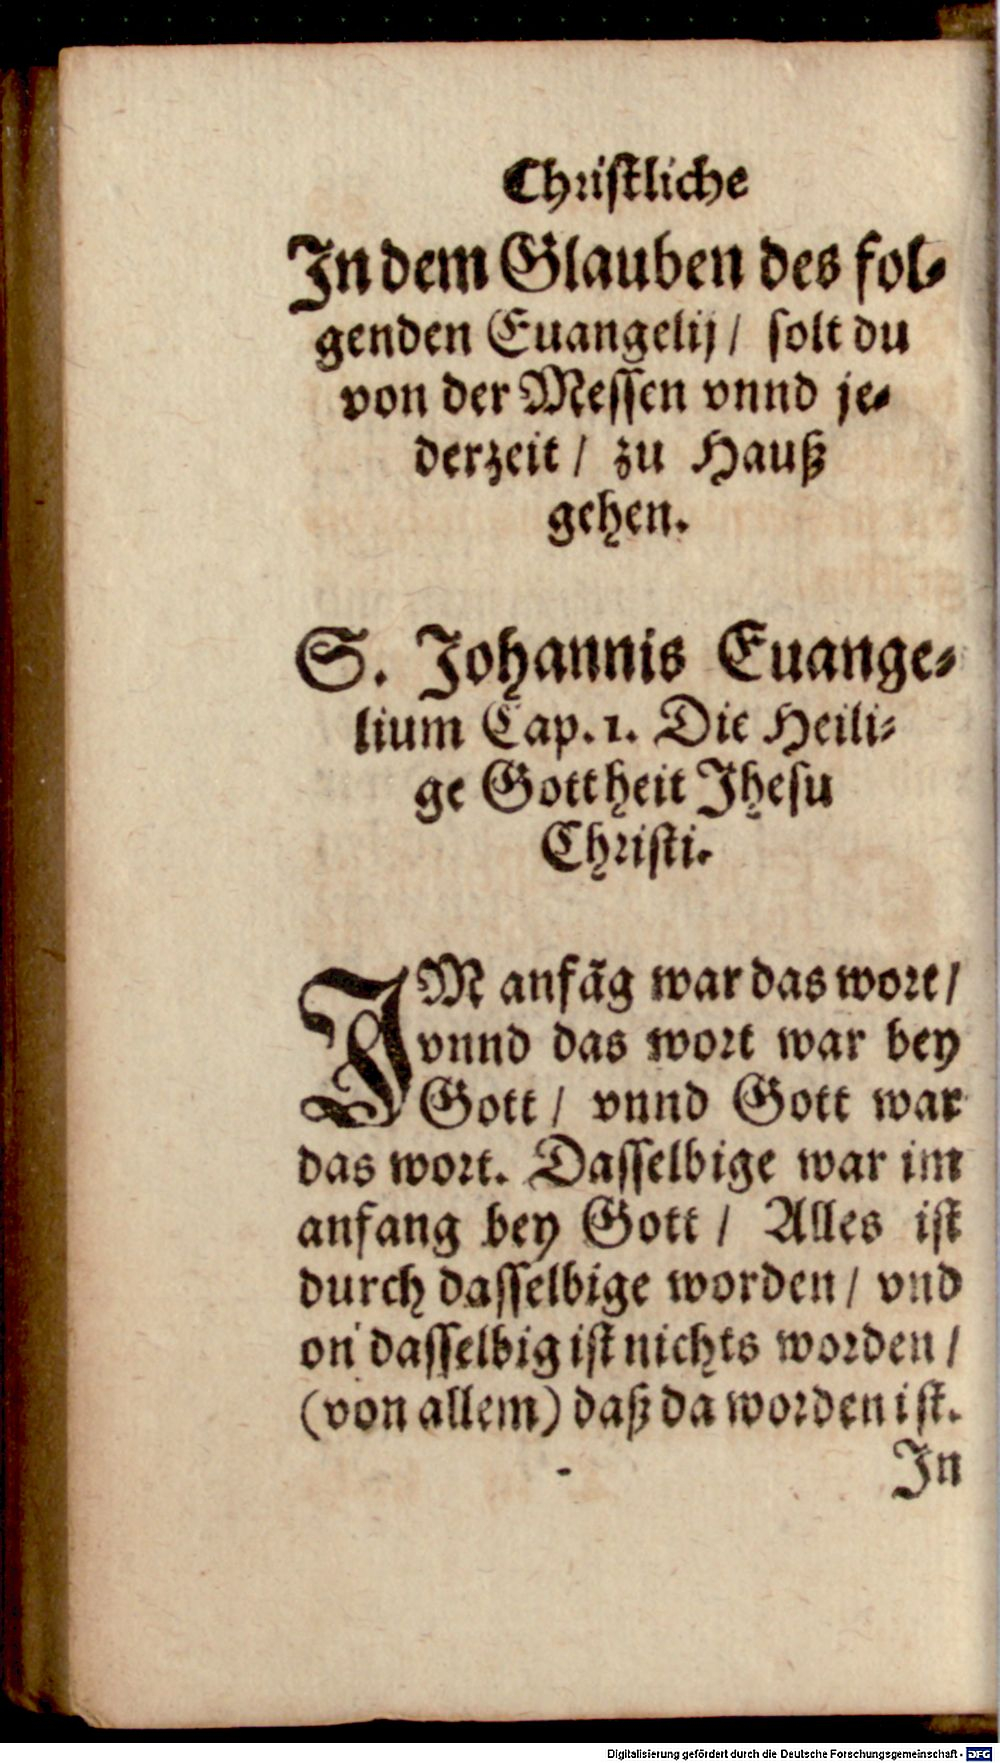 Christliche
In dem Glauben des fol⸗
genden Euangelij / solt du
von der Messen vnnd je⸗
derzeit / zu Hauß
gehen.
S. Johannis Euange⸗
lium Cap. 1. Die Heili⸗
ge Gottheit Jhesu
Christi.
IM anfãg war das wort /
vnnd das wort war bey
Gott / vnnd Gott war
das wort. Dasselbige war im
anfang bey Gott / Alles ist
durch dasselbige worden / vnd
on dasselbig ist nichts worden /
(von allem) daß da worden ist.
In
Digitalisierung gefördert durch die Deutsche Forschungsgemeinschaft - DFG